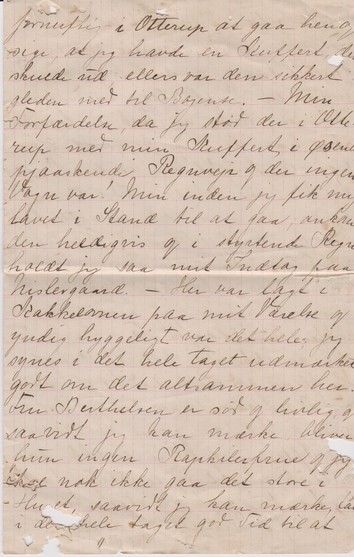 fornuftig i Otterup at gaa hen og
sige, at jeg havde en Kuffert der
skulde ud ellers var den sikkert
gleden med til Bogense. — Min
Forfærdelse, da jeg stod der i Otte-
rup med min Kuffert, i
pjaskende Regnvejr og der ingen
Vogn var! Men inden jeg fik mig
lavet i Stand til at gaa, ankom
den heldigvis og i styrtende Regn
holdt jeg saa mit Indtog paa
Hislergaard — Her var lagt i
Kakkelovnen paa mit Værelse og
yndig hyggeligt var det hele, jeg
synes i det hele taget udmærket
godt om det altsammen her.
Berthelsen er sød og livlig, og
saavidt jeg kan mærke bliver
hun ingen og jeg
nok ikke gaa det store i
saavidt jeg kan mærke,
i det hele taget god Tid til at